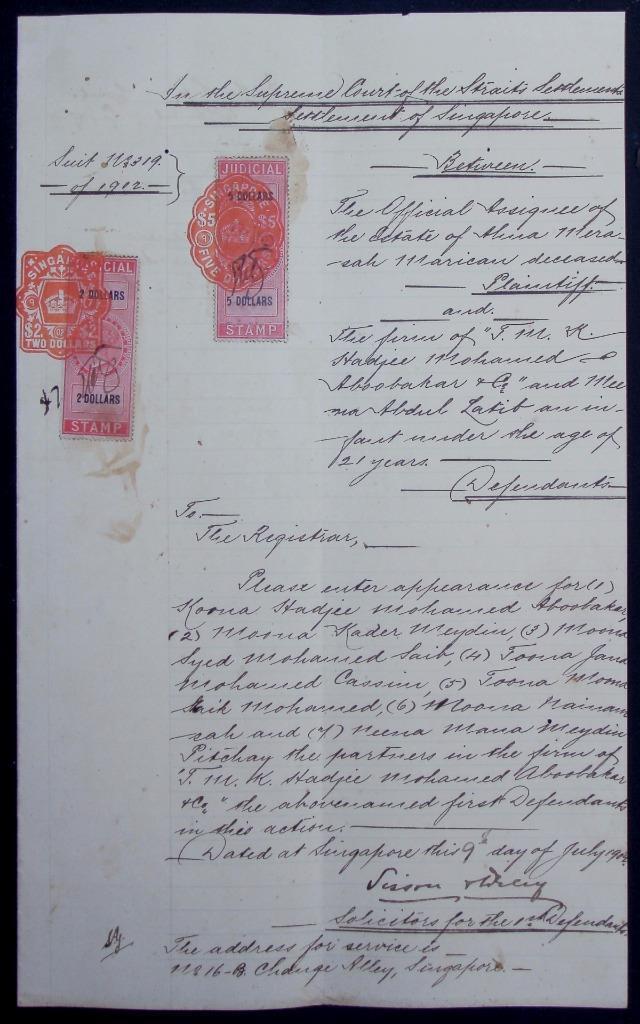 In the Supreme Court of the Straits Settlements
Settlement of Singapore.
Suit No 319.
of 1912.
Between.
The Official Assignee of
the estate of Ahna Mera-
sah Marican deceased
Plaintiff
and.
The firm of "T. M. K.
Hadjee Mohamed
Aboobakar & Co" and Mee
na Abdul Latib an in-
fant under the age of
21 years.
Defendants
JUDICIAL
5 DOLLARS
5 DOLLARS
STAMP
SINGAPORE
$5 $5
FIVE
JUDICIAL
2 DOLLARS
2 DOLLARS
STAMP
SINGA
$2 2
TWO DOLLARS
47
To.
The Registrar,
Please enter appearance for (1)
Koona Hadjee Mohamed Aboobakar,
(2) Moona Kader Meydin, (3) Moona
Syed Mohamed Saib, (4) Toona Jana
Mohamed Cassim, (5) Toona Moona
Mohamed, (6) Moona Nainam
sah and (7) Neena Mana Meydin
Pitchay the partners in the firm of
"T. M. K. Hadjee Mohamed Aboobakar
& Co" the abovenamed first Defendants
in this action.
Dated at Singapore this 9th day of July
Sisson &
Solicitors for the 1st Defendants
The address for service is
No 16-B. Change Alley, Singapore.